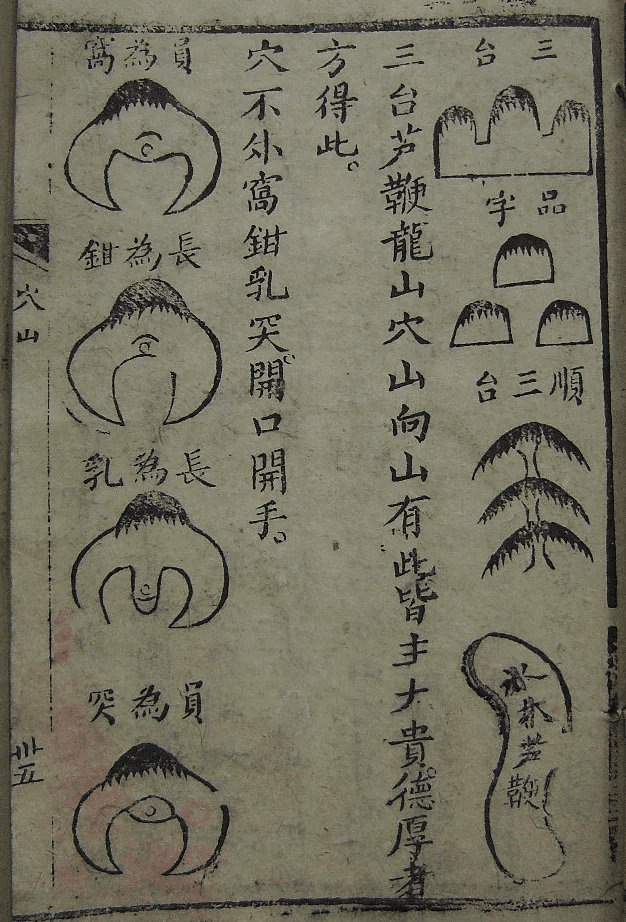 三台
品字
順三台
芦鞭
三台芦鞭龍山穴山向山有此皆主大貴。德厚者
方得此。
穴不外窩鉗乳突。開口開手。
員為窩
長為鉗
長為乳
員為突
穴山
卅五